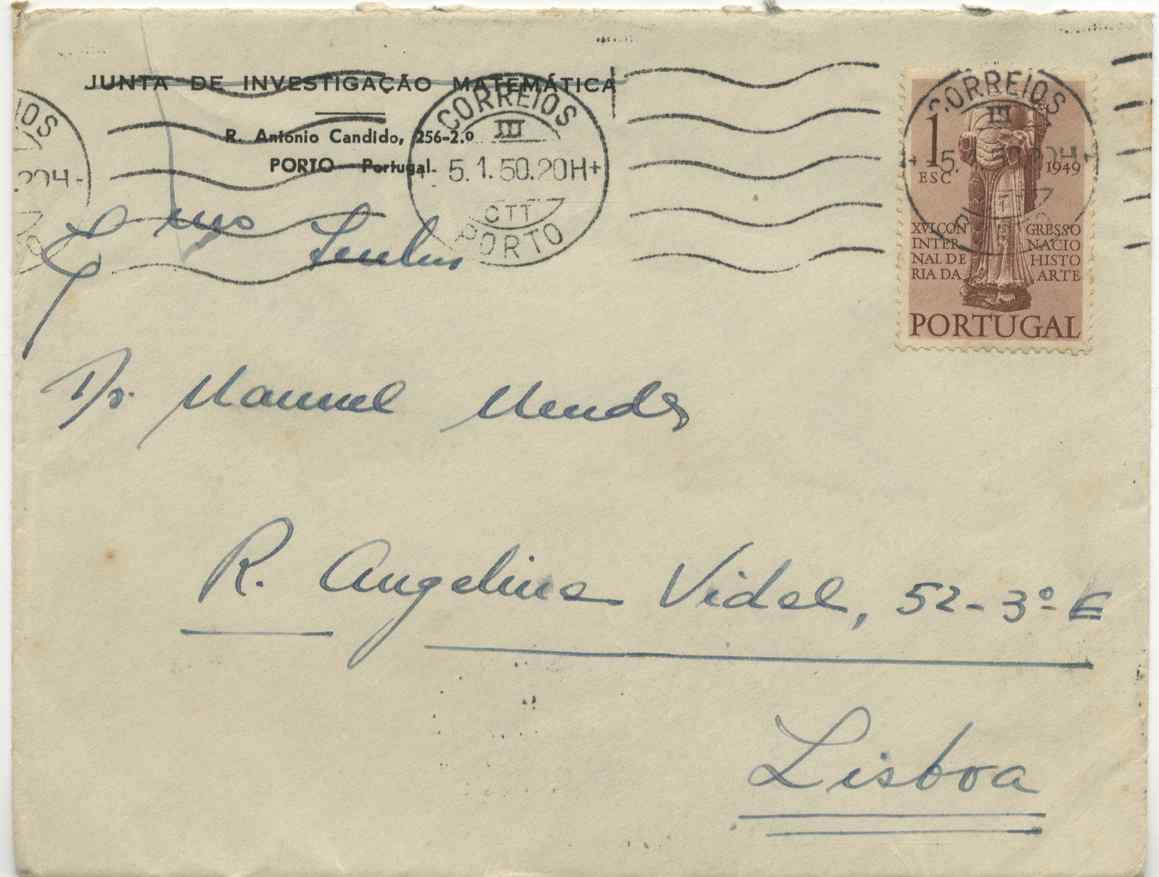 JUNTA DE INVESTIGAÇÃO MATEMÁTICA
R. Antonio Candido, 256-2.º
PORTO - Portugal
CORREIOS
III
5.1.50.20H+
CTT
PORTO
IOS
.20H-
CORREIOS
III
1
ESC
1949
XVI CON GRESSO
INTER NACIO
NAL DE HISTO
RIA DA ARTE
PORTUGAL
Exmo Senhor
Dr. Manuel Mendes
R. Angelina Vidal, 52-3º E
Lisboa